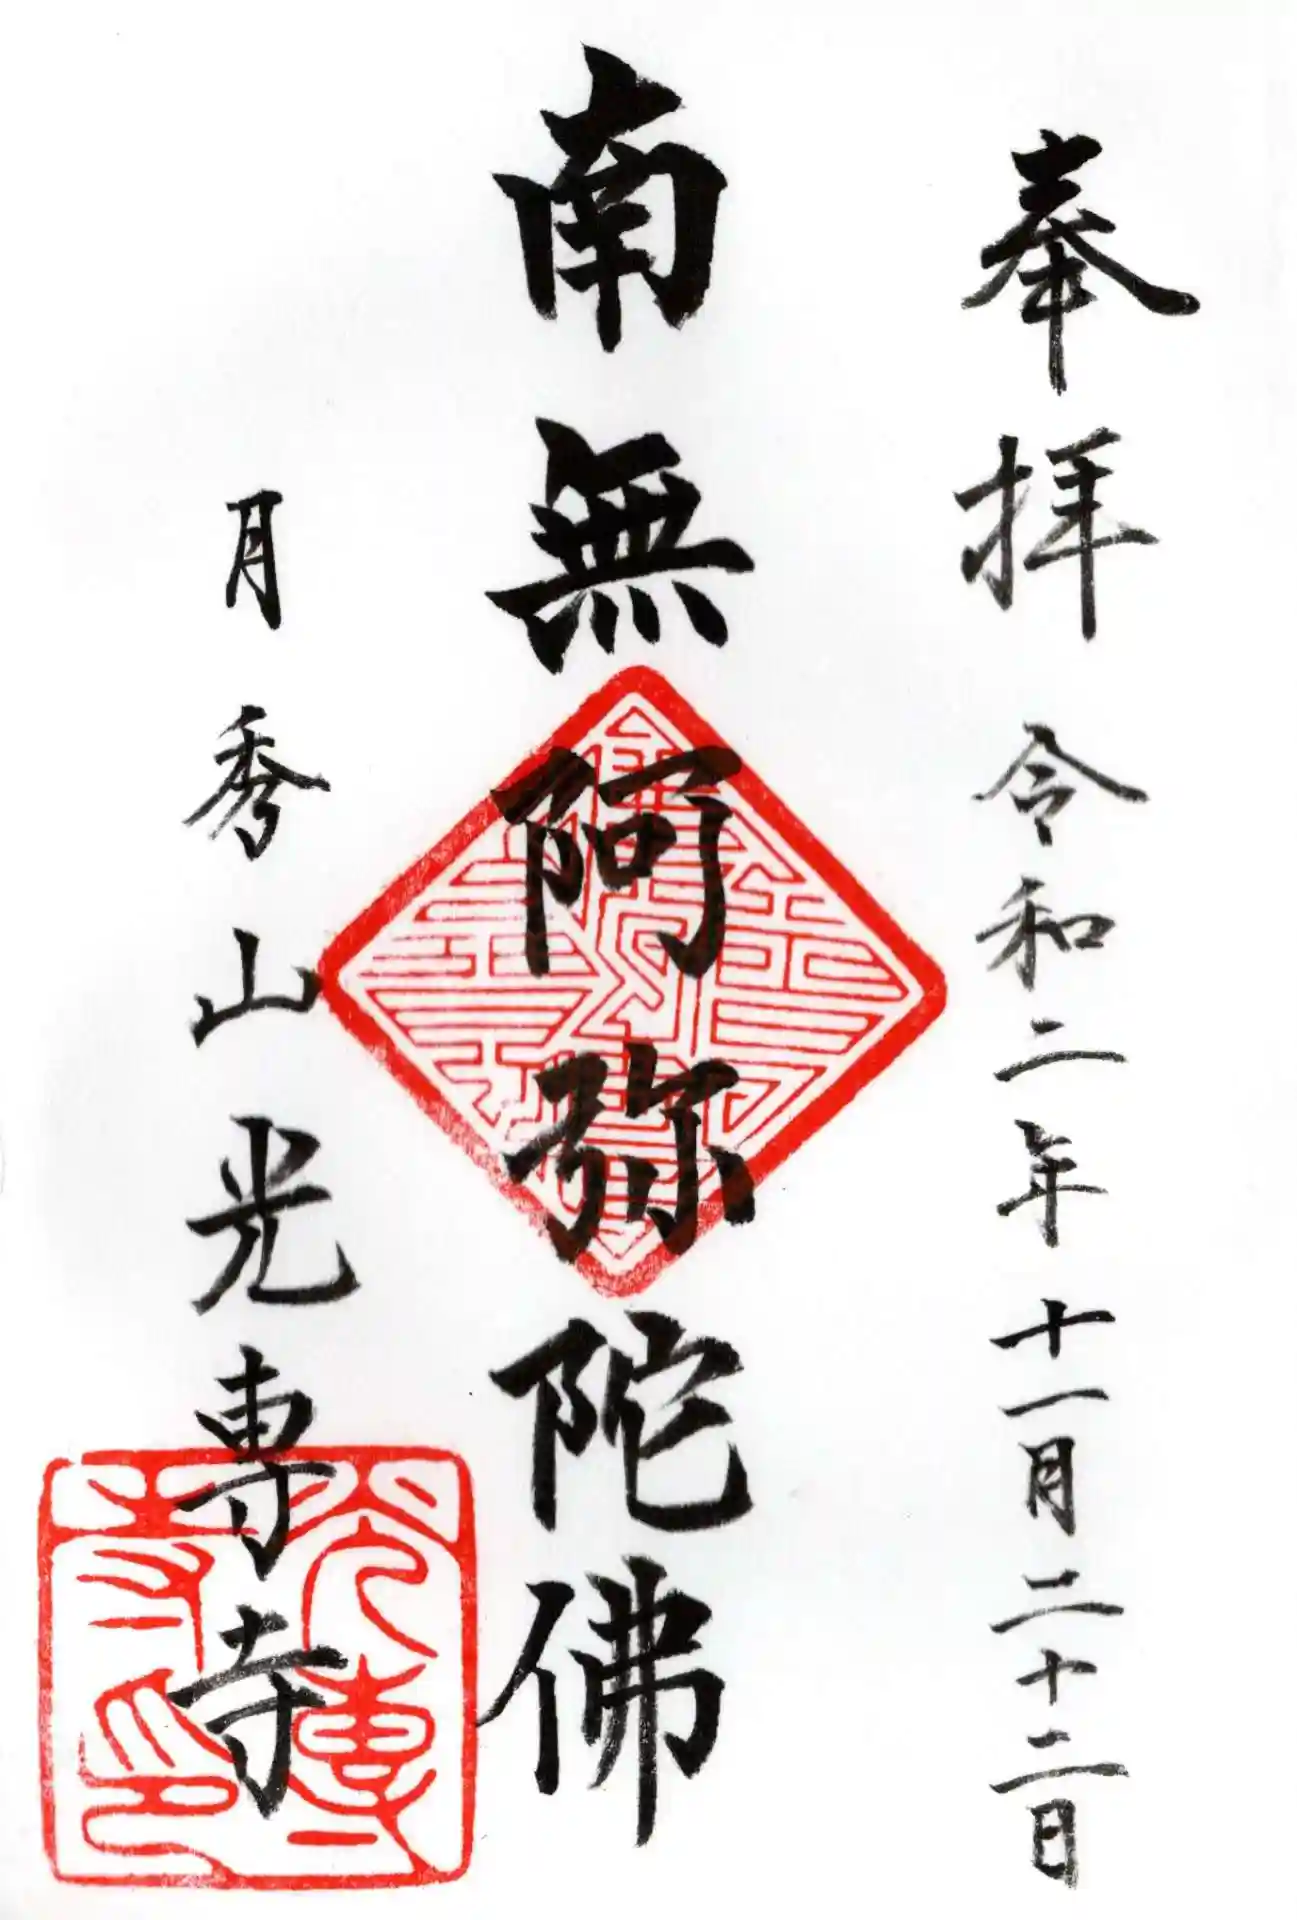 奉拝 令和二年十一月二十二日
南無阿弥陀佛
月秀山光専寺
光専寺印